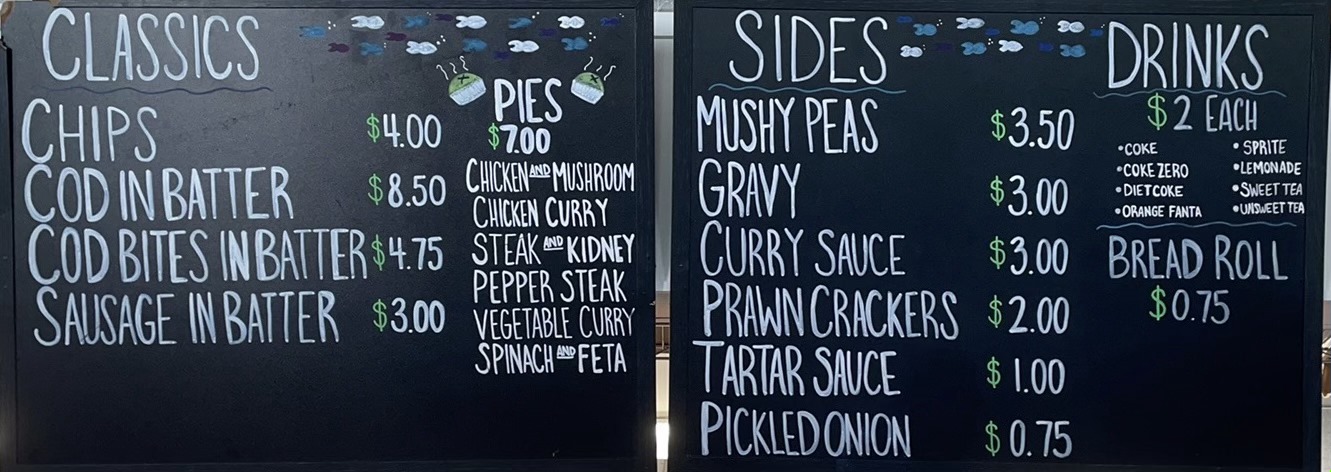 CLASSICS
CHIPS $4.00
COD IN BATTER $8.50
COD BITES IN BATTER $4.75
SAUSAGE IN BATTER $3.00
PIES
$7.00
CHICKEN AND MUSHROOM
CHICKEN CURRY
STEAK AND KIDNEY
PEPPER STEAK
VEGETABLE CURRY
SPINACH AND FETA
SIDES
MUSHY PEAS $3.50
GRAVY $3.00
CURRY SAUCE $3.00
PRAWN CRACKERS $2.00
TARTAR SAUCE $1.00
PICKLED ONION $0.75
DRINKS
$2 EACH
•COKE
•COKE ZERO
•DIET COKE
•ORANGE FANTA
•SPRITE
•LEMONADE
•SWEET TEA
•UNSWEET TEA
BREAD ROLL
$0.75